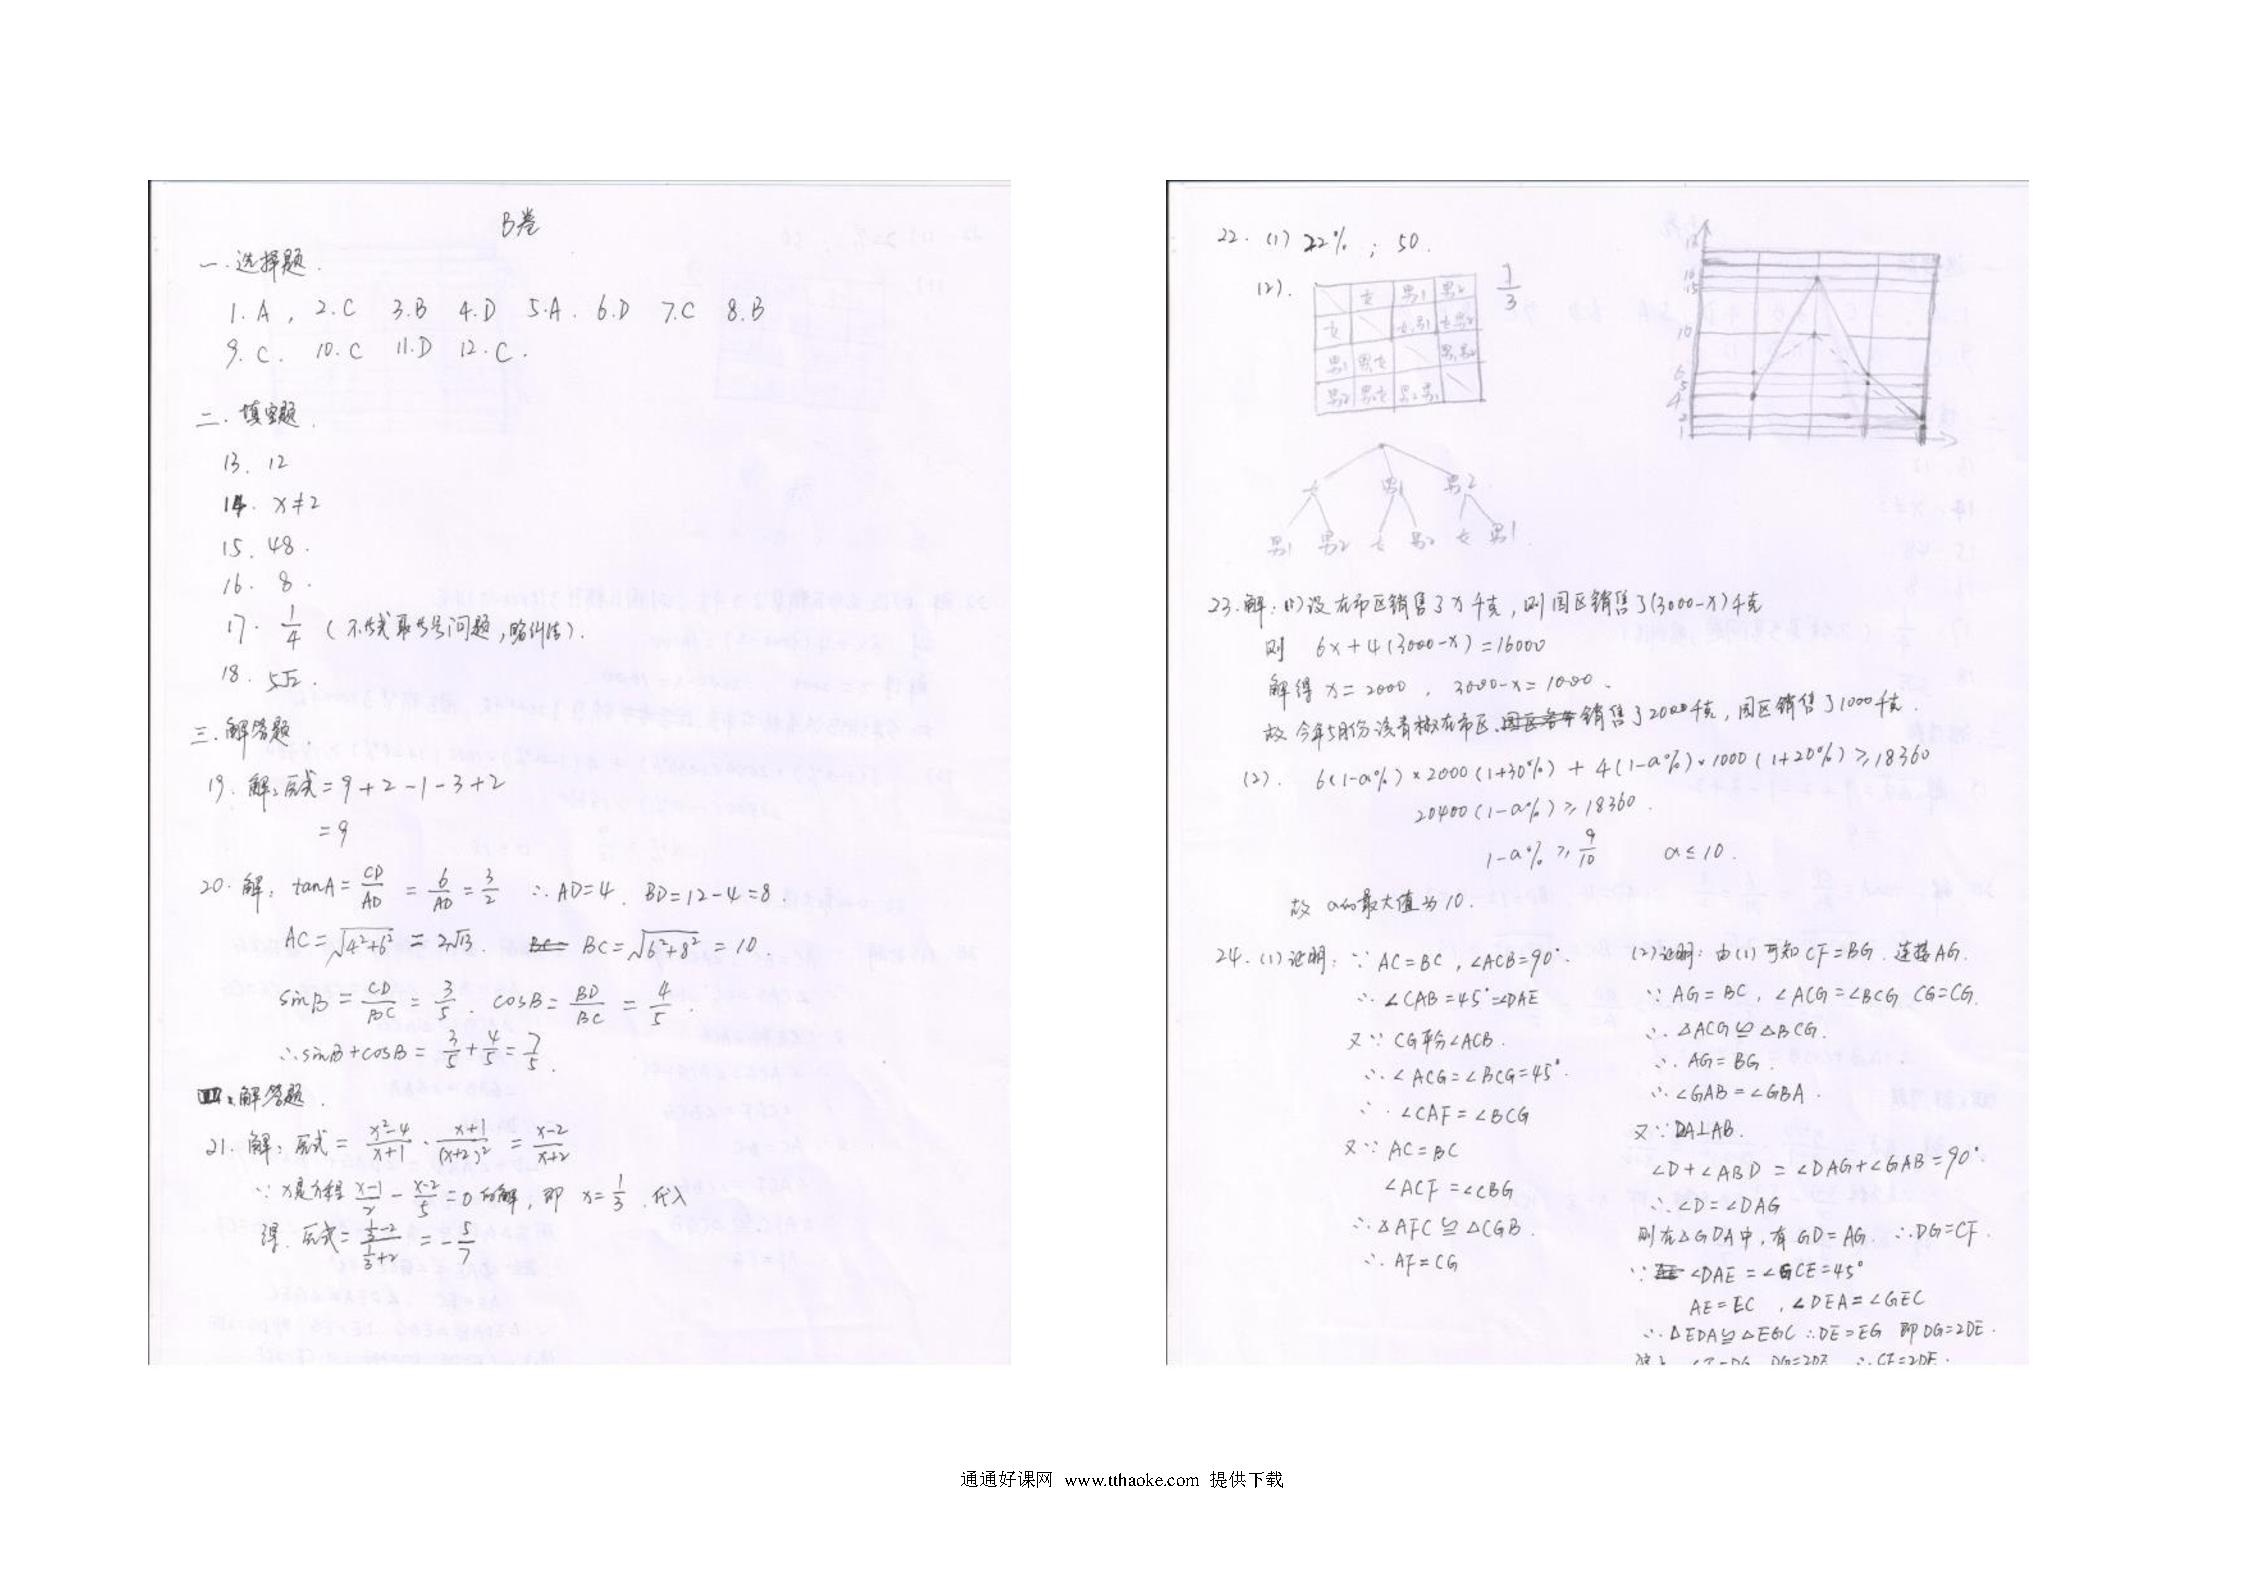 B卷
一.选择题.
1.A, 2.C 3.B 4.D 5.A. 6.D 7.C 8.B
9.C. 10.C 11.D 12.C.
二.填空题.
13. 12
14. x≠2
15. 48.
16. 8.
17. 1/4 (不
18. 5√2.
三.解答题
19. 解:原式=9+2-1-3+2
=9
20. 解: tanA=CD/AD=6/AD=3/2 ∴AD=4. BD=12-4=8.
AC=√(4²+6²)=2√13. BC=√(6²+8²)=10.
sinB=CD/BC=3/5. cosB=BD/BC=4/5.
∴sinB+cosB=3/5+4/5=7/5.
四、解答题.
21. 解:原式=(x²-4)/(x+1)·(x+1)/(x+2)²=(x-2)/(x+2)
∵x是方程(x-1)/2-(x-2)/5=0的解,即 x=1/3.代入
得.原式=(1/3-2)/(1/3+2)=-5/7
22. (1) 22% ; 50.
(2). 1/3
女 男1 男2
女 女男1 女男2
男1 男1女 男1男2
男2 男2女 男2男1
18
16
15
10
6
5
4
2
1
女 男1 男2.
男1 男2 女 男2 女 男1.
23.解:(1)设在市区销售了x千克,则园区销售了(3000-x)千克
则 6x+4(3000-x)=16000
解得 x=2000 , 3000-x=1000.
故今年5月份该青椒在市区销售了2000千克,园区销售了1000千克.
(2). 6(1-a%)×2000(1+30%)+4(1-a%)×1000(1+20%)≥18360
20400(1-a%)≥18360.
1-a%≥9/10 a≤10.
故 a的最大值为10.
24. (1)证明:∵AC=BC,∠ACB=90°.
∴∠CAB=45°=∠DAE
又∵CG平分∠ACB.
∴∠ACG=∠BCG=45°.
∴∠CAF=∠BCG
又∵AC=BC
∠ACF=∠CBG
∴△AFC≌△CGB.
∴AF=CG
(2)证明:由(1)可知CF=BG.连接AG.
∵AG=BC,∠ACG=∠BCG CG=CG.
∴△ACG≌△BCG.
∴AG=BG.
∴∠GAB=∠GBA.
又∵DA⊥AB.
∠D+∠ABD=∠DAG+∠GAB=90°.
∴∠D=∠DAG
则在△GDA中,有GD=AG.∴DG=CF.
∵∠DAE=∠GCE=45°
AE=EC ,∠DEA=∠GEC
∴△EDA≌△EGC ∴DE=EG 即DG=2DE.
DG=2DE ∴CF=2DE.
通通好课网 www.tthaoke.com 提供下载